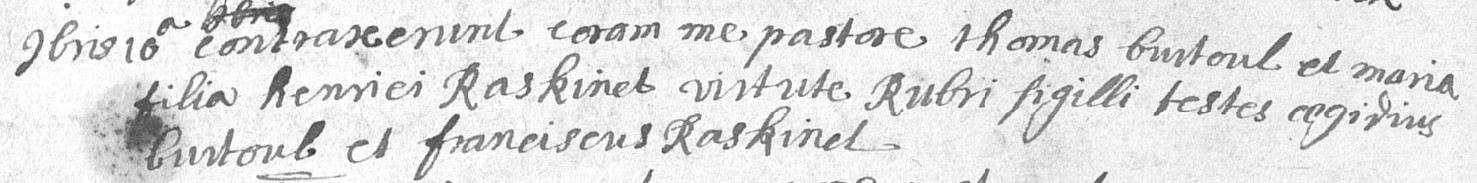 9bris 10a contraxerunt coram me pastore thomas burtoul et maria
filia henrici Raskinet virtute Rubri sigilli testes ægidius
burtoul et franciscus Raskinet